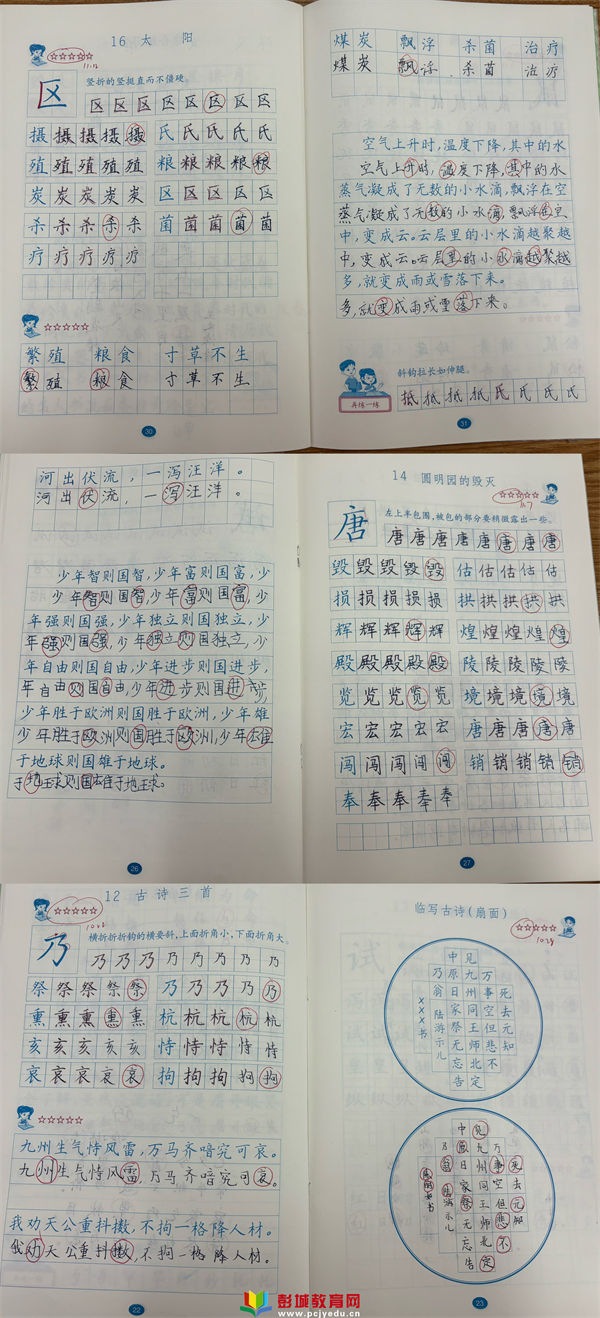 16 太 阳
11.12
竖折的竖挺直而不僵硬。
区 区 区 区 区 区 区 区 区
摄 摄 摄 摄 摄 氏 氏 氏 氏 氏
殖 殖 殖 殖 殖 粮 粮 粮 粮 粮
炭 炭 炭 炭 炭 区 区 区 区 区
杀 杀 杀 杀 杀 菌 菌 菌 菌 菌
疗 疗 疗 疗 疗
繁 殖 粮 食 寸 草 不 生
繁 殖 粮 食 寸 草 不 生
30
煤 炭 飘 浮 杀 菌 治 疗
煤 炭 飘 浮 杀 菌 治 疗
空气上升时,温度下降,其中的水
空气上升时,温度下降,其中的水
蒸气凝成了无数的小水滴,飘浮在空
蒸气凝成了无数的小水滴,飘浮在空
中,变成云。云层里的小水滴越聚越
中,变成云。云层里的小水滴越聚越
多,就变成雨或雪落下来。
多,就变成雨或雪落下来。
斜钩拉长如伸腿。
再练一练
抵 抵 抵 抵 氏 氏 氏 氏
31
河出伏流,一泻汪洋。
河出伏流,一泻汪洋。
少年智则国智,少年富则国富,少
少年智则国智,少年富则国富,少
年强则国强,少年独立则国独立,少
年强则国强,少年独立则国独立,少
年自由则国自由,少年进步则国进步,
年自由则国自由,少年进步则国进步,
少年胜于欧洲则国胜于欧洲,少年雄
少年胜于欧洲则国胜于欧洲,少年雄
于地球则国雄于地球。
于地球则国雄于地球。
26
14 圆明园的毁灭
11.7
左上半包围,被包的部分要稍微露出一些。
唐 唐 唐 唐 唐 唐 唐 唐 唐
毁 毁 毁 毁 毁 估 估 估 估 估
损 损 损 损 损 拱 拱 拱 拱 拱
辉 辉 辉 辉 辉 煌 煌 煌 煌 煌
殿 殿 殿 殿 殿 陵 陵 陵 陵 陵
览 览 览 览 览 境 境 境 境 境
宏 宏 宏 宏 宏 唐 唐 唐 唐 唐
闯 闯 闯 闯 闯 销 销 销 销 销
奉 奉 奉 奉 奉
27
12 古诗三首
横折折折钩的横要斜,上面折角小,下面折角大。
乃 乃 乃 乃 乃 乃 乃 乃 乃
祭 祭 祭 祭 祭 乃 乃 乃 乃 乃
熏 熏 熏 熏 熏 杭 杭 杭 杭 杭
亥 亥 亥 亥 亥 恃 恃 恃 恃 恃
哀 哀 哀 哀 哀 拘 拘 拘 拘 拘
九州生气恃风雷,万马齐喑究可哀。
九州生气恃风雷,万马齐喑究可哀。
我劝天公重抖擞,不拘一格降人材。
我劝天公重抖擞,不拘一格降人材。
22
临写古诗(扇面)
死去元知
万事空但悲不
见九州同王师北定
中原日家祭无忘告
乃翁 陆游示儿
×××书
死去元知
万事空但悲不
见九州同王师北定
中原日家祭无忘告
乃翁 陆游示儿
23
彭城教育网
www.pcjyedu.cn